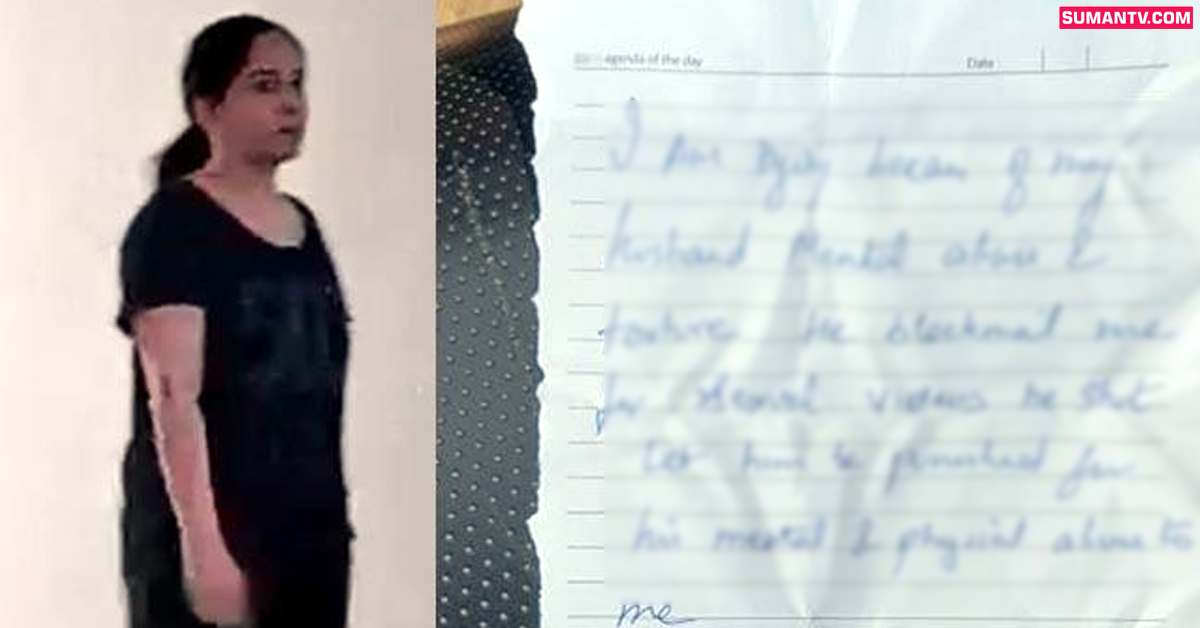 SUMANTV.COM
agenda of the day Date
I Am Dying becau of my
husband Mental abuse &
torture He blackmail me
for sexual videos he shot
Let him be punished for
his mental & physical abuse to
me